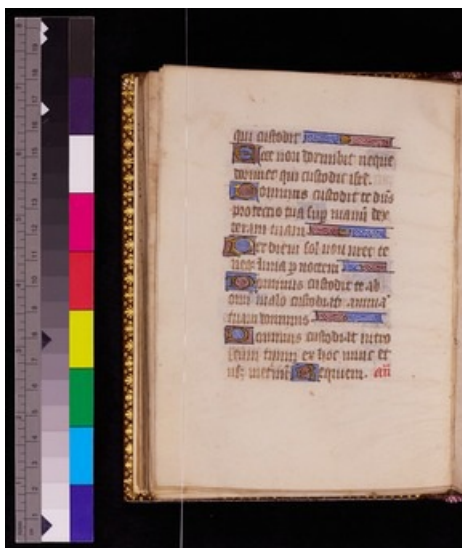 qui custodit
Ecce non dormibit neque
dormiet qui custodit isrl.
Dominus custodit te dns
protectio tua sup manū dex
teram tuam
Per diem sol non uret te
neqz luna p noctem
Dominus custodit te ab
omi malo custodiat animā
tuam dominus
Dominus custodiat intro
itum tuum ex hoc nunc et
usqz Requiem. añ